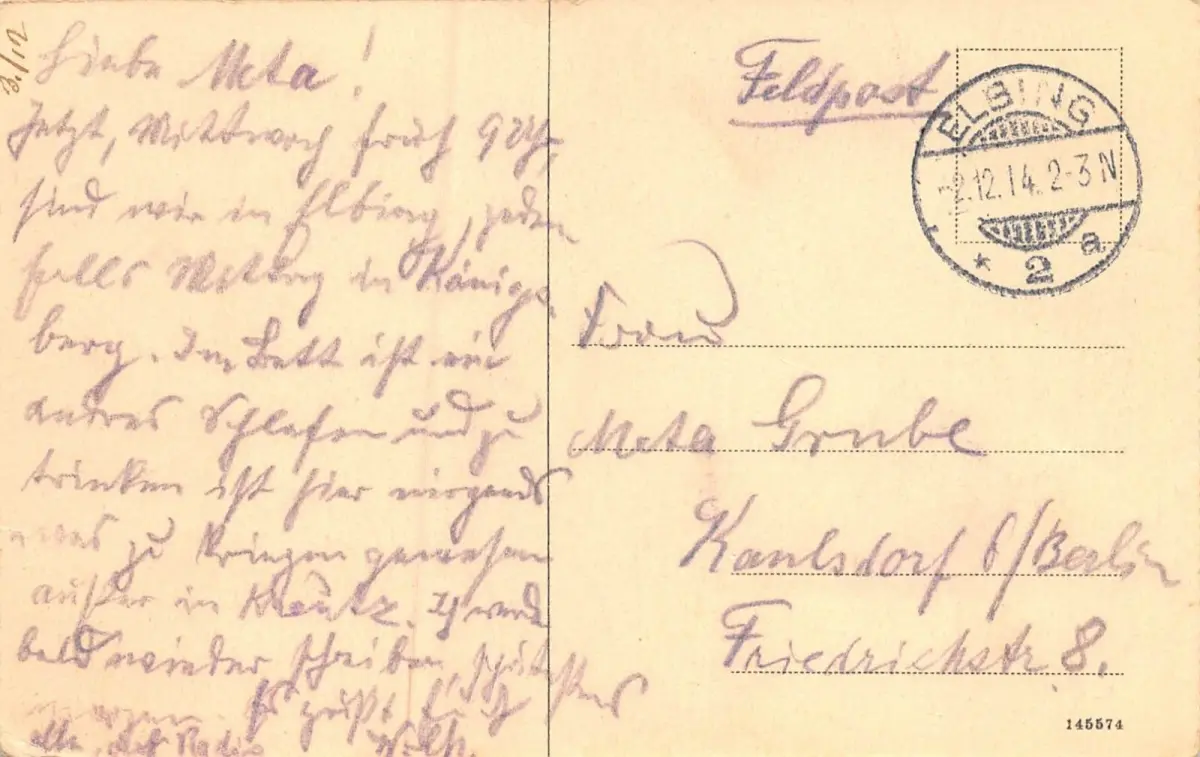 3./12
Liebe Meta!
Jetzt, Mittwoch früh 9 Uhr,
sind wir in Elbing, jeden
falls Mittag in Königs-
berg. Im Bett ist ein
andres Schlafen und zu
trinken ist hier nirgends
was zu kriegen gewesen
außer in Kreutz. Ich werde
bald wieder schreiben, spätestens
morgen. Es grüßt Euch
Feldpost
ELBING
2.12.14. 2-3 N
* 2 a
Frau
Meta Grube
Kaulsdorf b/Berlin
Friedrichstr 8.
145574